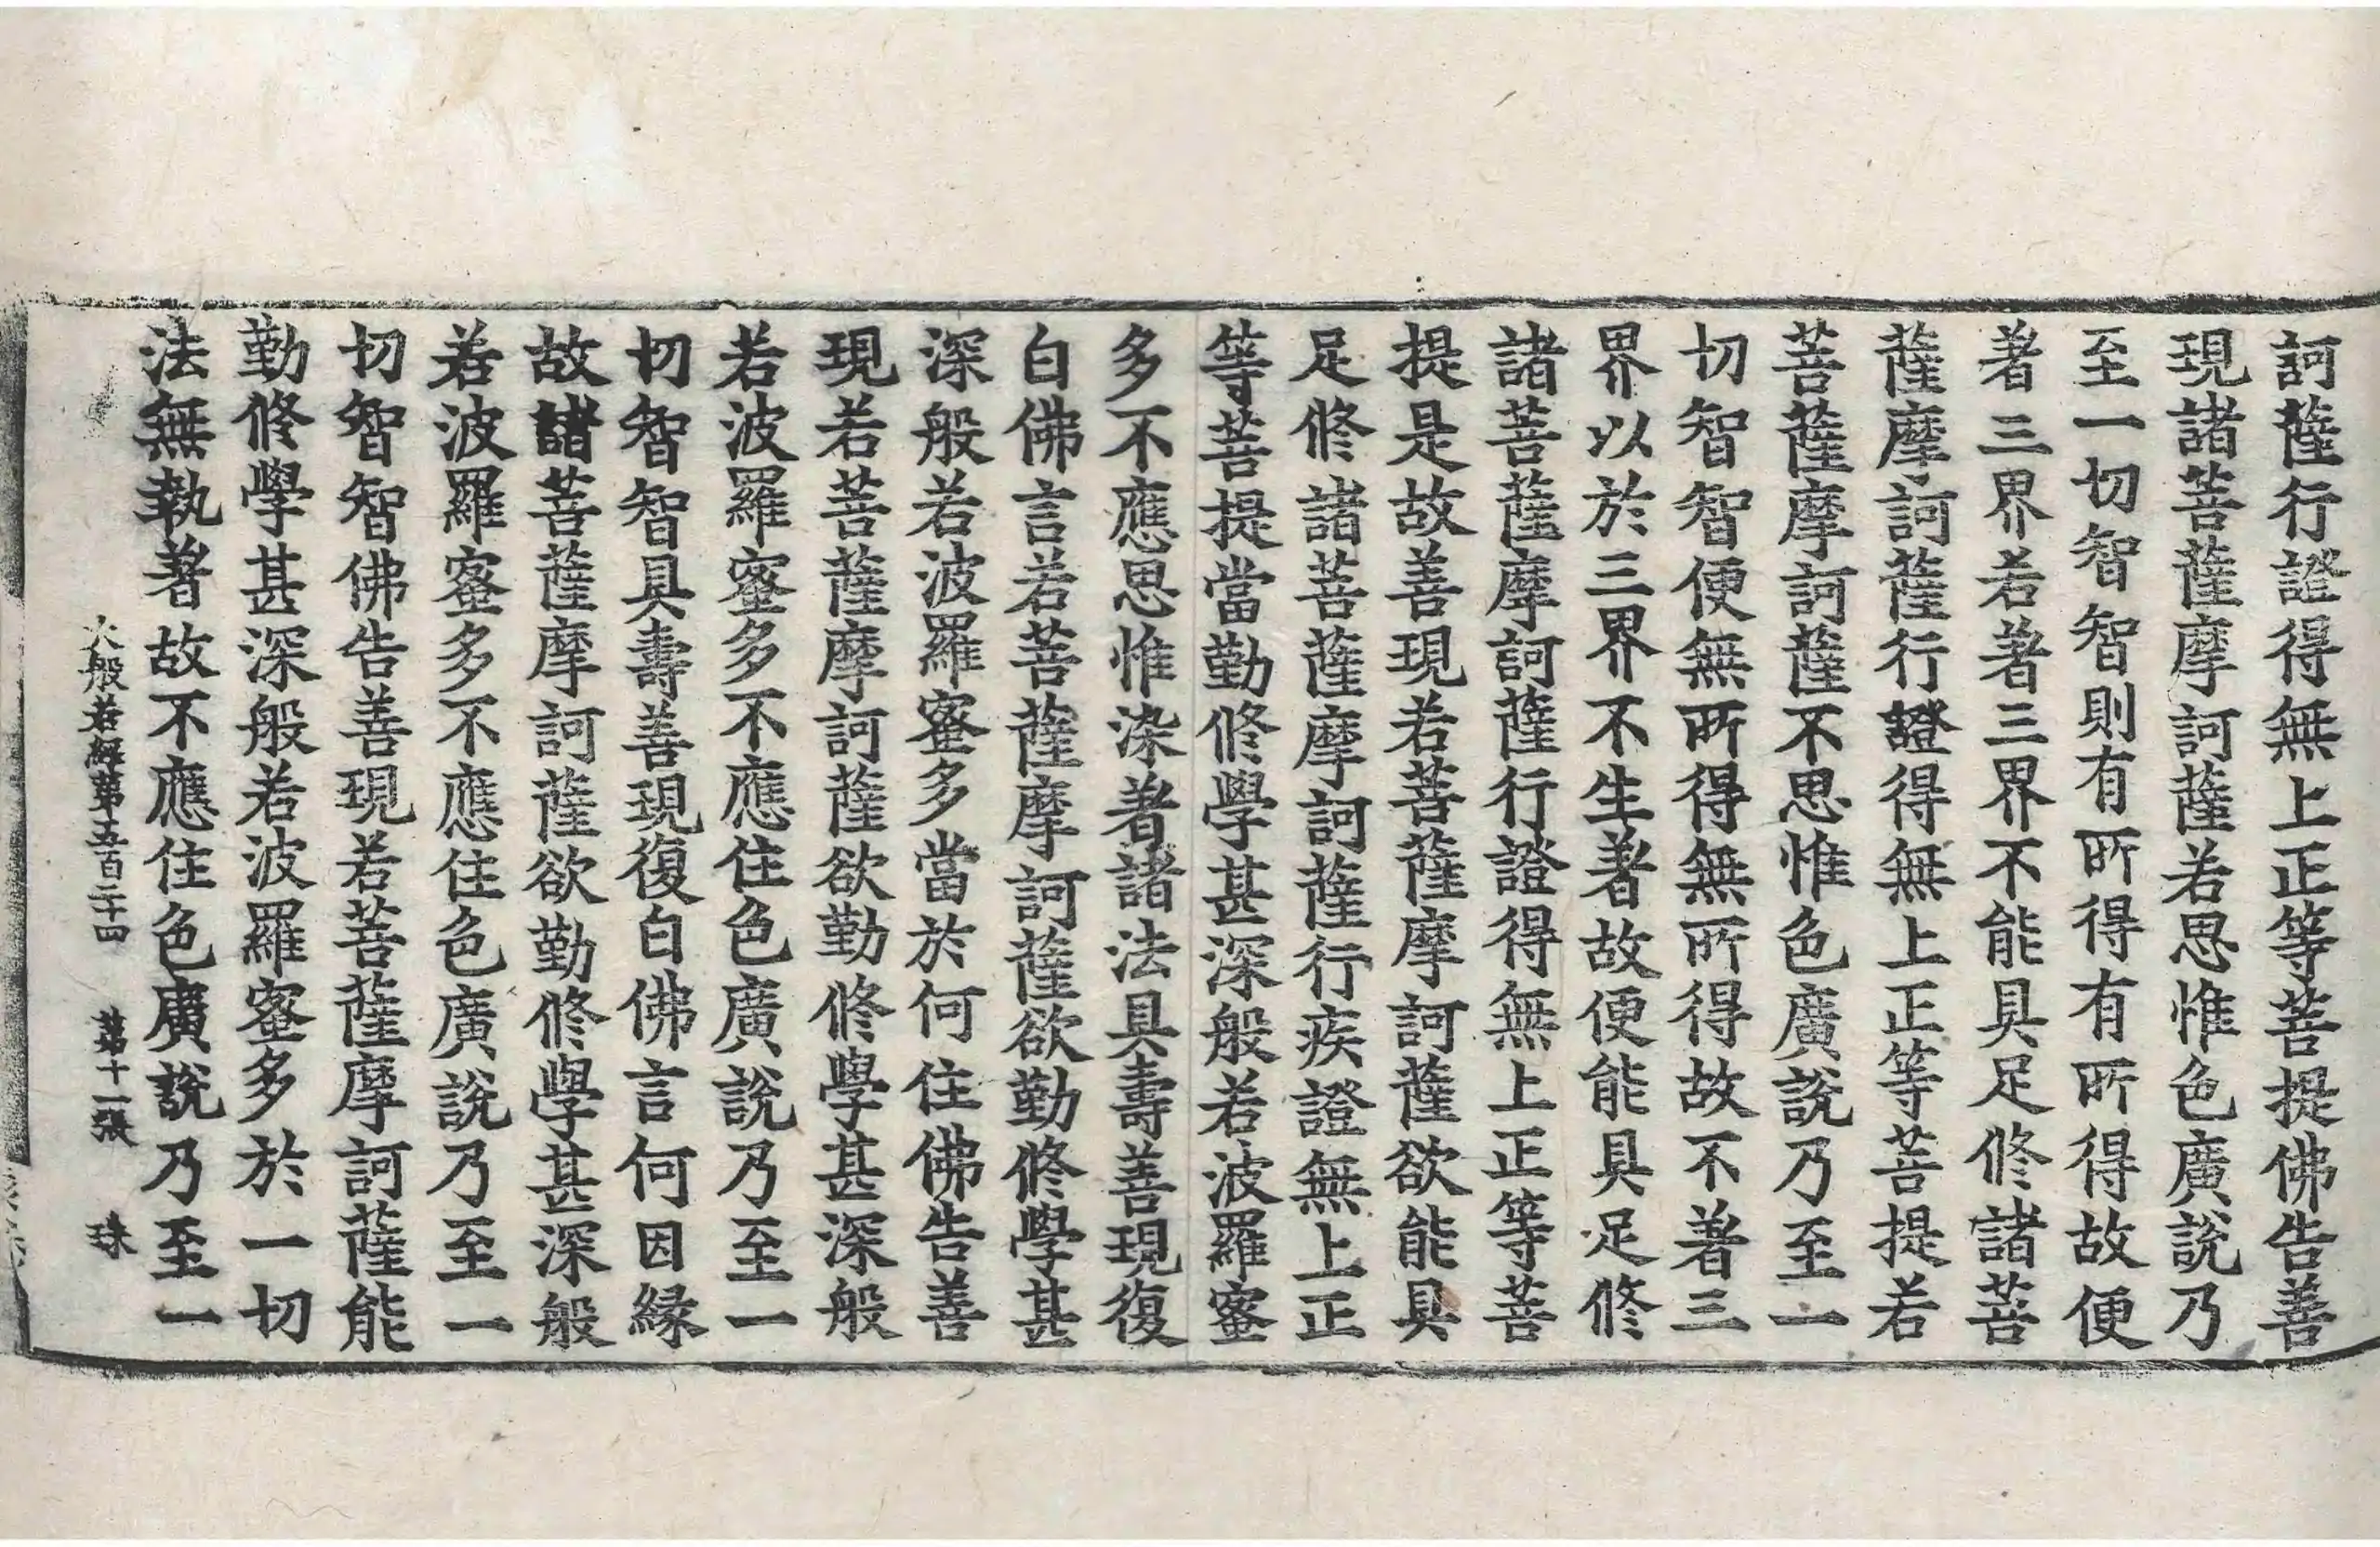 訶薩行證得無上正等菩提佛告善
現諸菩薩摩訶薩若思惟色廣說乃
至一切智智則有所得有所得故便
著三界若著三界不能具足修諸菩
薩摩訶薩行證得無上正等菩提若
菩薩摩訶薩不思惟色廣說乃至一
切智智便無所得無所得故不著三
界以於三界不生著故便能具足修
諸菩薩摩訶薩行證得無上正等菩
提是故善現若菩薩摩訶薩欲能具
足修諸菩薩摩訶薩行疾證無上正
等菩提當勤修學甚深般若波羅蜜
多不應思惟染著諸法具壽善現復
白佛言若菩薩摩訶薩欲勤修學甚
深般若波羅蜜多當於何住佛告善
現若菩薩摩訶薩欲勤修學甚深般
若波羅蜜多不應住色廣說乃至一
切智智具壽善現復白佛言何因緣
故諸菩薩摩訶薩欲勤修學甚深般
若波羅蜜多不應住色廣說乃至一
切智智佛告善現若菩薩摩訶薩能
勤修學甚深般若波羅蜜多於一切
法無執著故不應住色廣說乃至一
大般若經第五百二十四 第十一張 珠